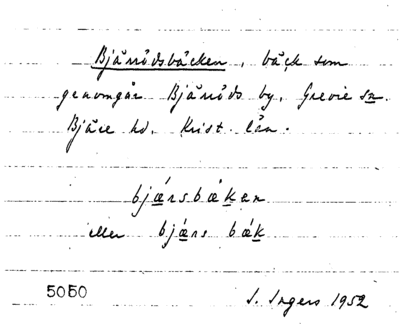 Bjärrödsbäcken, bäck som
genomgår Bjärröds by, Grevie sn.
Bjäre hd. Krist. län.
bjæ̲rsbæk̲en
eller bjæ̲rs bæk̲
5050
I. Ingers 1952